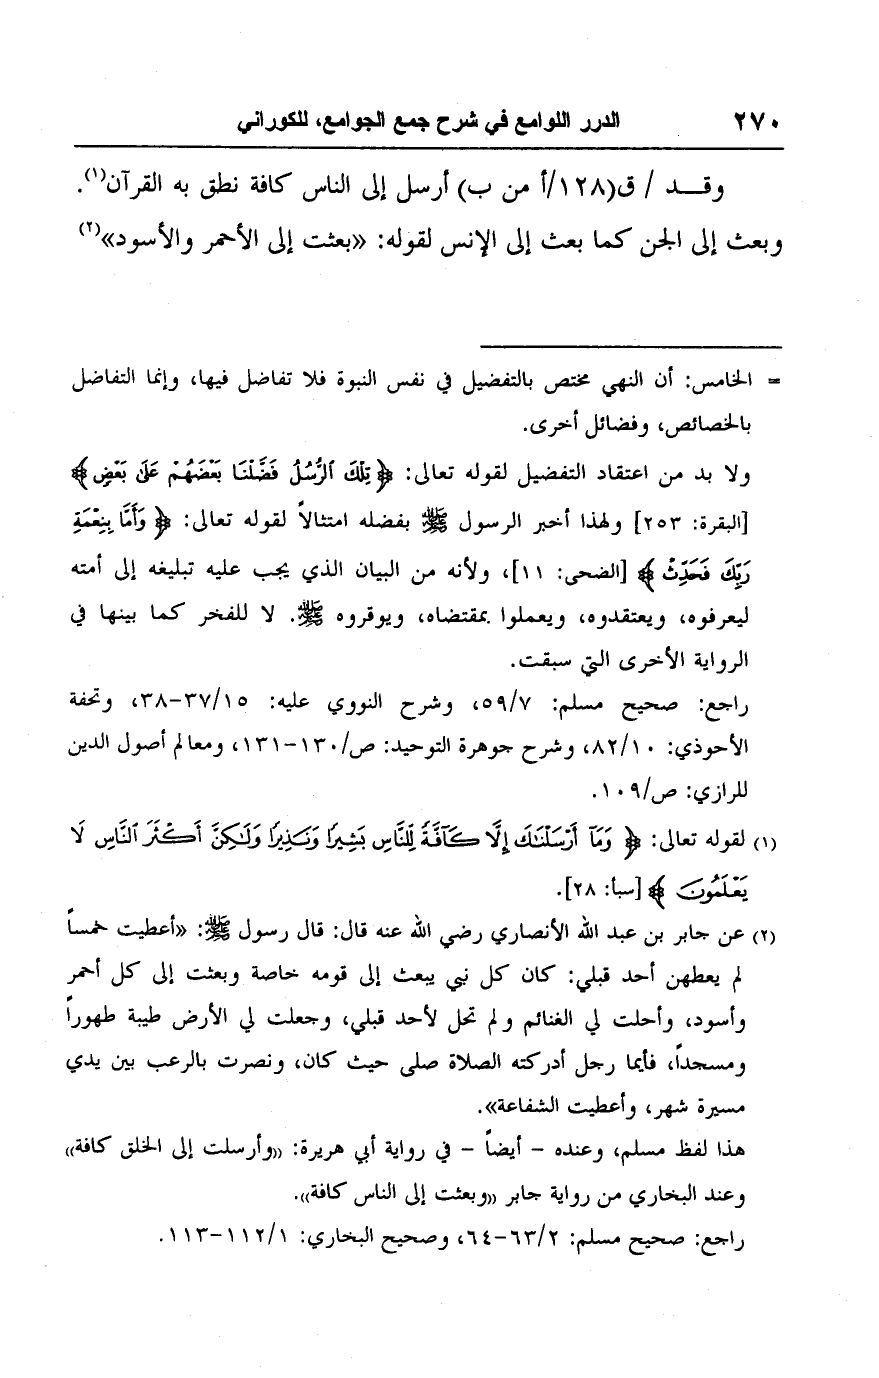 ٢٧٠ الدرر اللوامع في شرح جمع الجوامع، للكوراني
وقد / ق(١٢٨/أ من ب) أرسل إلى الناس كافة نطق به القرآن(١).
وبعث إلى الجن كما بعث إلى الإنس لقوله: «بعثت إلى الأحمر والأسود»(٢)
= الخامس: أن النهي مختص بالتفضيل في نفس النبوة فلا تفاضل فيها، وإنما التفاضل
بالخصائص، وفضائل أخرى.
ولا بد من اعتقاد التفضيل لقوله تعالى: ﴿ تِلْكَ ٱلرُّسُلُ فَضَّلْنَا بَعْضَهُمْ عَلَىٰ بَعْضٍ ﴾
[البقرة: ٢٥٣] ولهذا أخبر الرسول ﷺ بفضله امتثالاً لقوله تعالى: ﴿ وَأَمَّا بِنِعْمَةِ
رَبِّكَ فَحَدِّثْ ﴾ [الضحى: ١١]، ولأنه من البيان الذي يجب عليه تبليغه إلى أمته
ليعرفوه، ويعتقدوه، ويعملوا بمقتضاه، ويوقروه ﷺ. لا للفخر كما بينها في
الرواية الأخرى التي سبقت.
راجع: صحيح مسلم: ٥٩/٧، وشرح النووي عليه: ٣٧/١٥-٣٨، وتحفة
الأحوذي: ٨٢/١٠، وشرح جوهرة التوحيد: ص/١٣٠-١٣١، ومعالم أصول الدين
للرازي: ص/١٠٩.
(١) لقوله تعالى: ﴿ وَمَآ أَرْسَلْنَٰكَ إِلَّا كَآفَّةً لِّلنَّاسِ بَشِيرًا وَنَذِيرًا وَلَٰكِنَّ أَكْثَرَ ٱلنَّاسِ لَا
يَعْلَمُونَ ﴾ [سبأ: ٢٨].
(٢) عن جابر بن عبد الله الأنصاري رضي الله عنه قال: قال رسول ﷺ: «أعطيت خمساً
لم يعطهن أحد قبلي: كان كل نبي يبعث إلى قومه خاصة وبعثت إلى كل أحمر
وأسود، وأحلت لي الغنائم ولم تحل لأحد قبلي، وجعلت لي الأرض طيبة طهوراً
ومسجداً، فأيما رجل أدركته الصلاة صلى حيث كان، ونصرت بالرعب بين يدي
مسيرة شهر، وأعطيت الشفاعة».
هذا لفظ مسلم، وعنده - أيضاً - في رواية أبي هريرة: «وأرسلت إلى الخلق كافة»
وعند البخاري من رواية جابر «وبعثت إلى الناس كافة».
راجع: صحيح مسلم: ٦٣/٢-٦٤، وصحيح البخاري: ١١٢/١-١١٣.